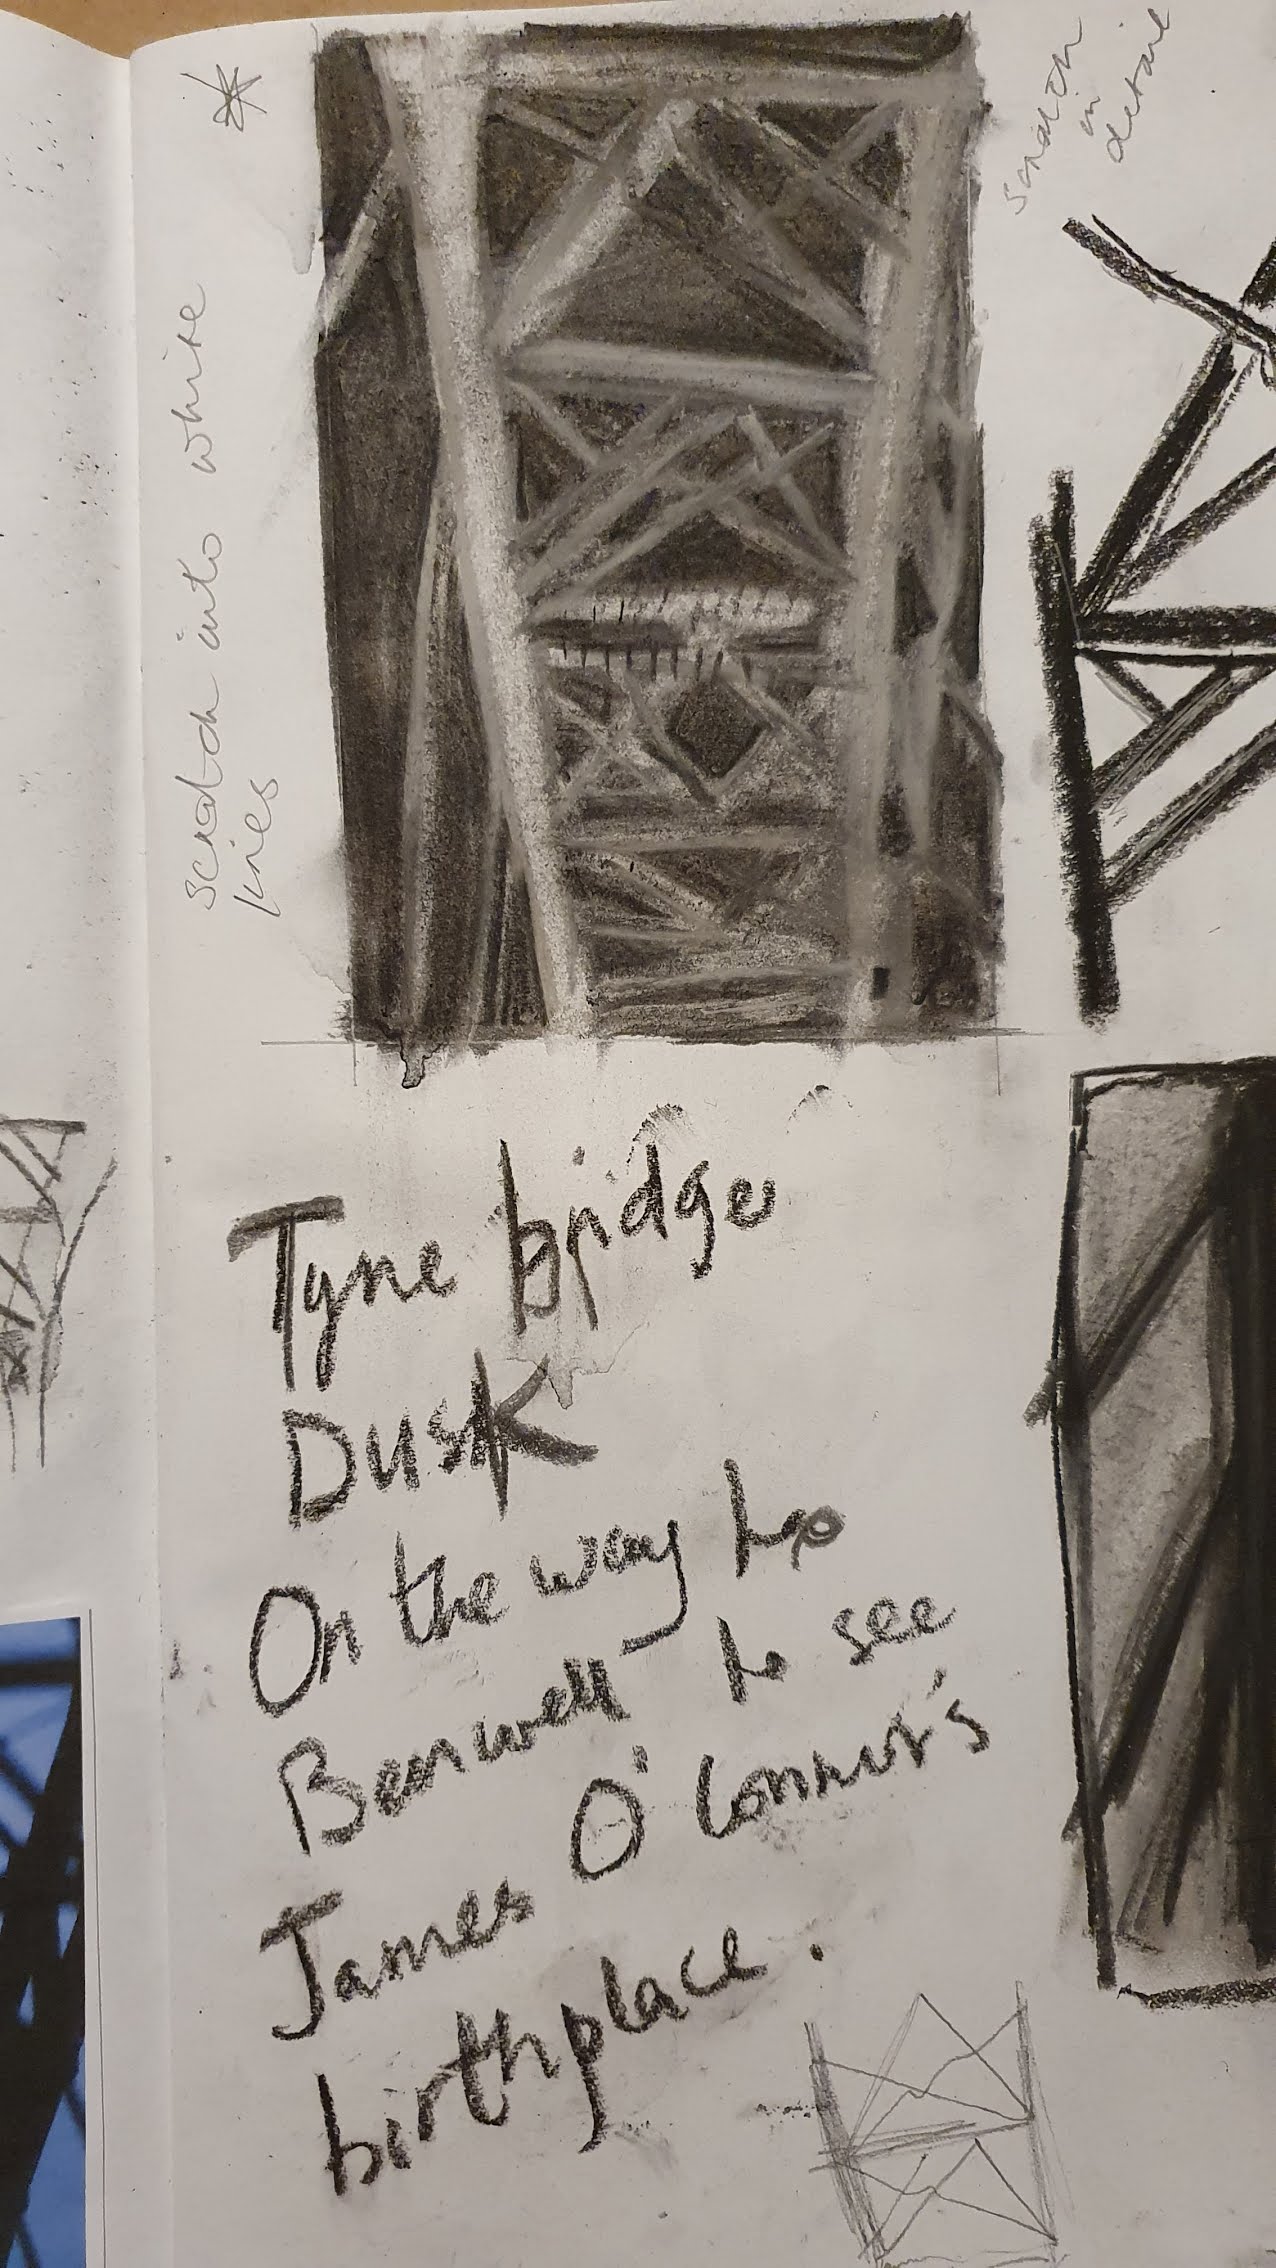 scratch into white
lines
scratch
in
detail
Tyne bridge
Dusk
On the way to
Benwell to see
James O'Connor's
birthplace.